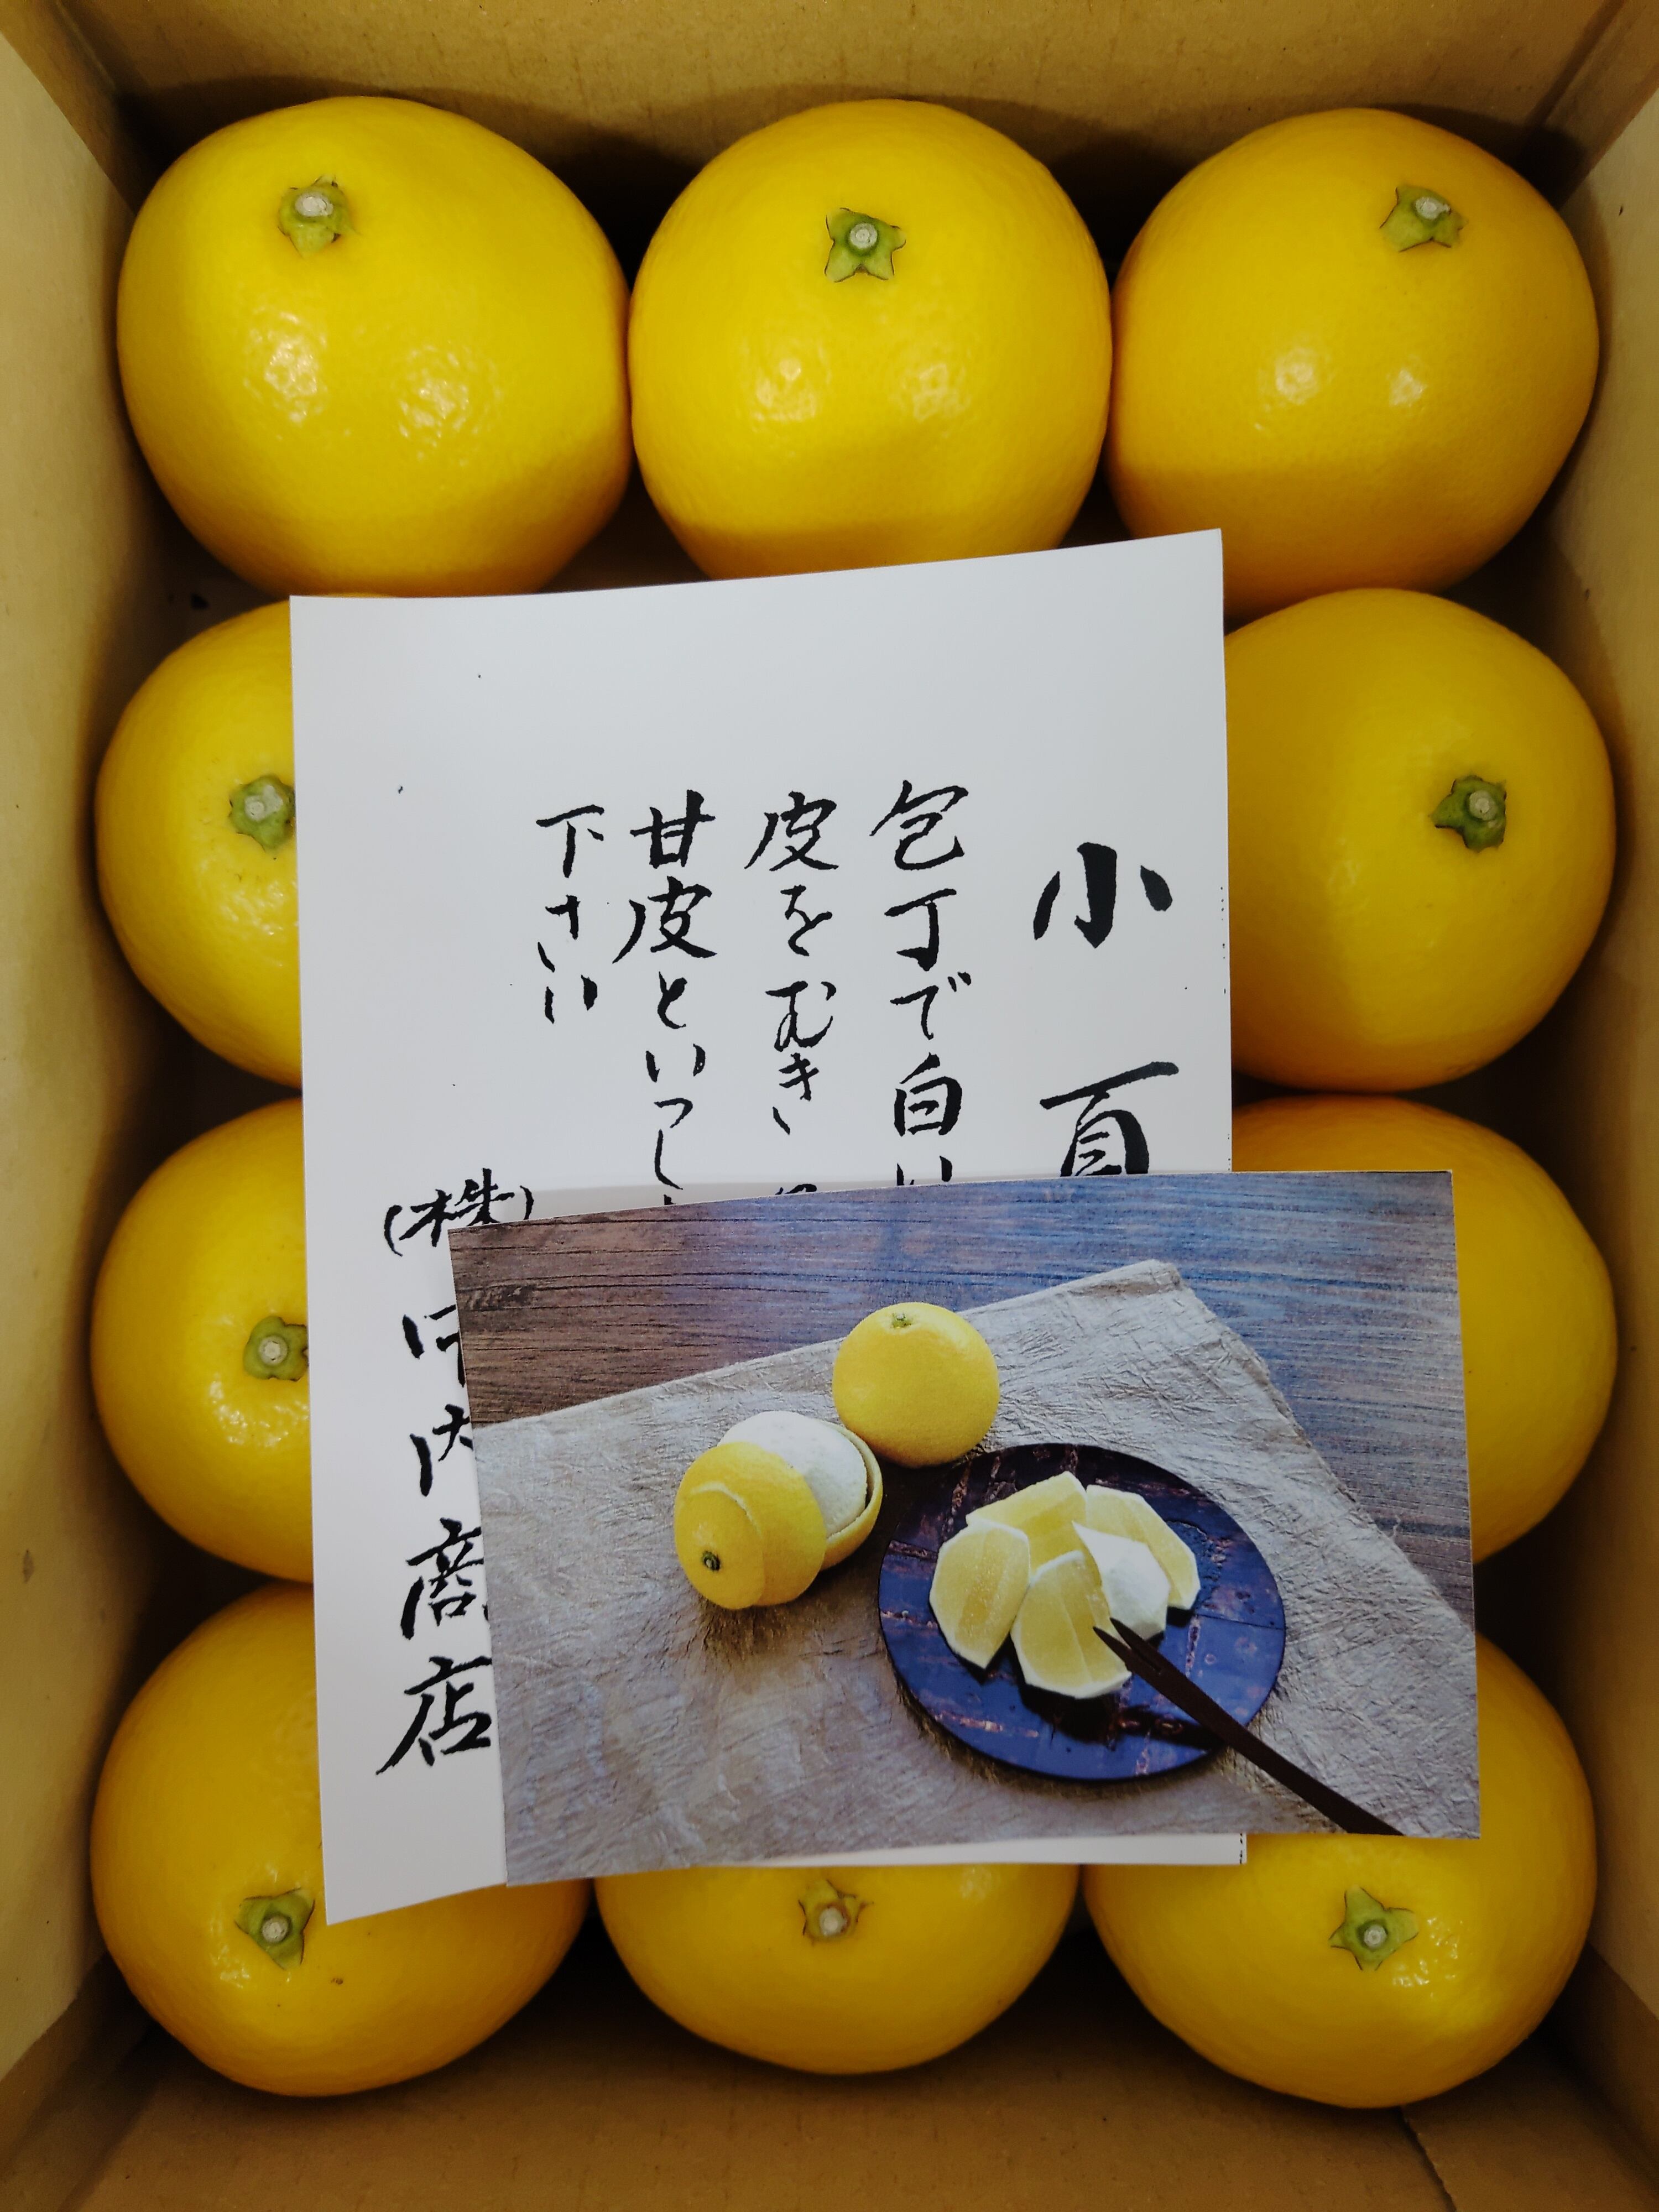 小夏
包丁で白い
皮をむき
甘皮といっし
下さい
(株)
内商店